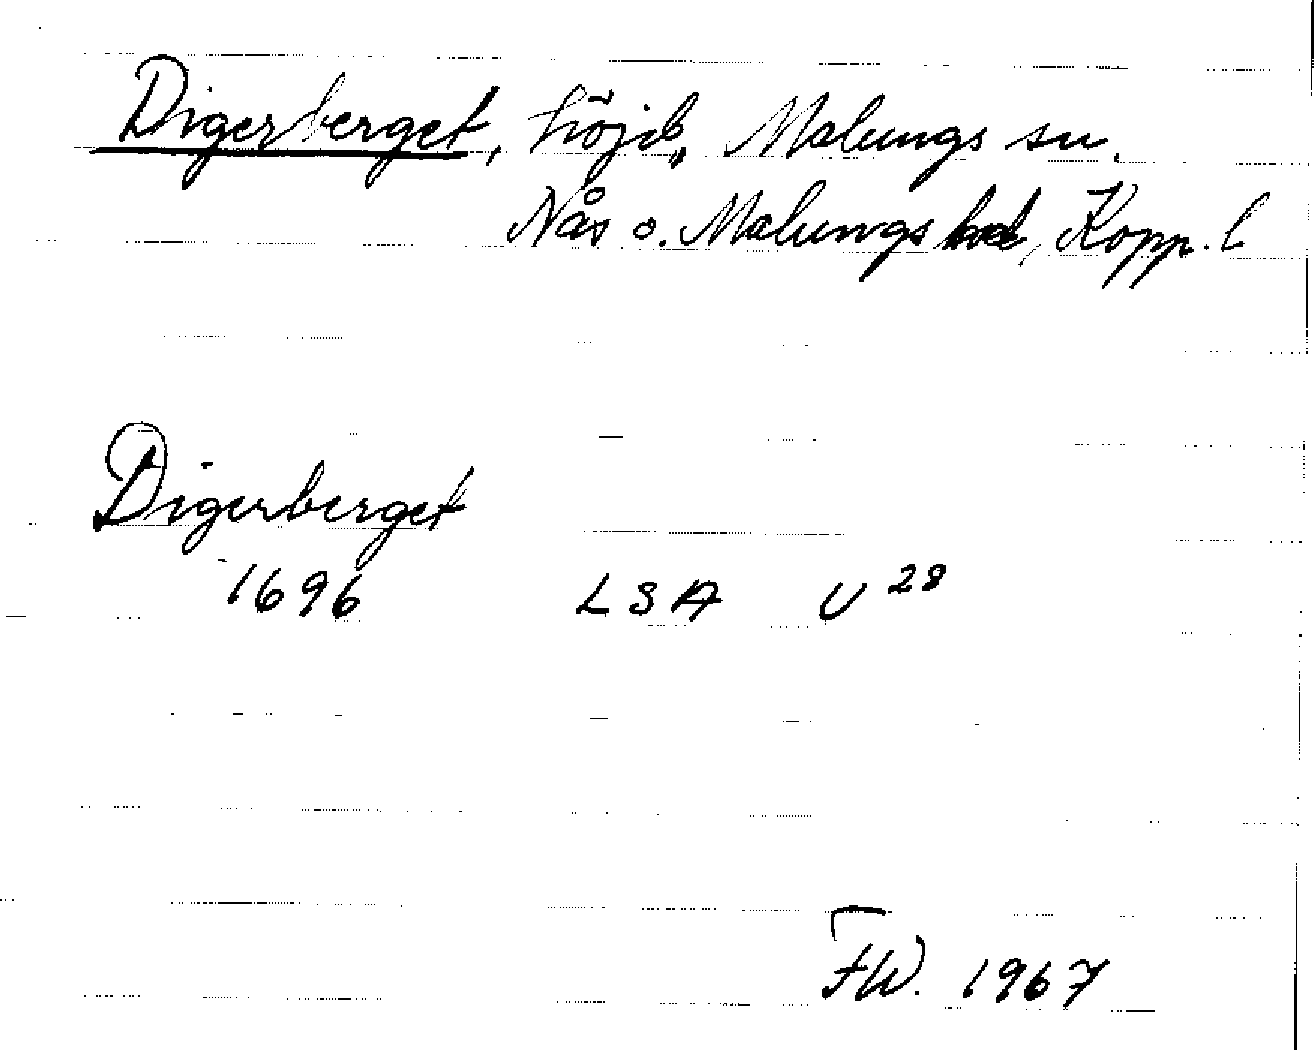 Digerberget, höjd, Malungs sn.
Nås o. Malungs hd, Kopp. l
Digerberget
1696 LSA U 28
FW. 1967